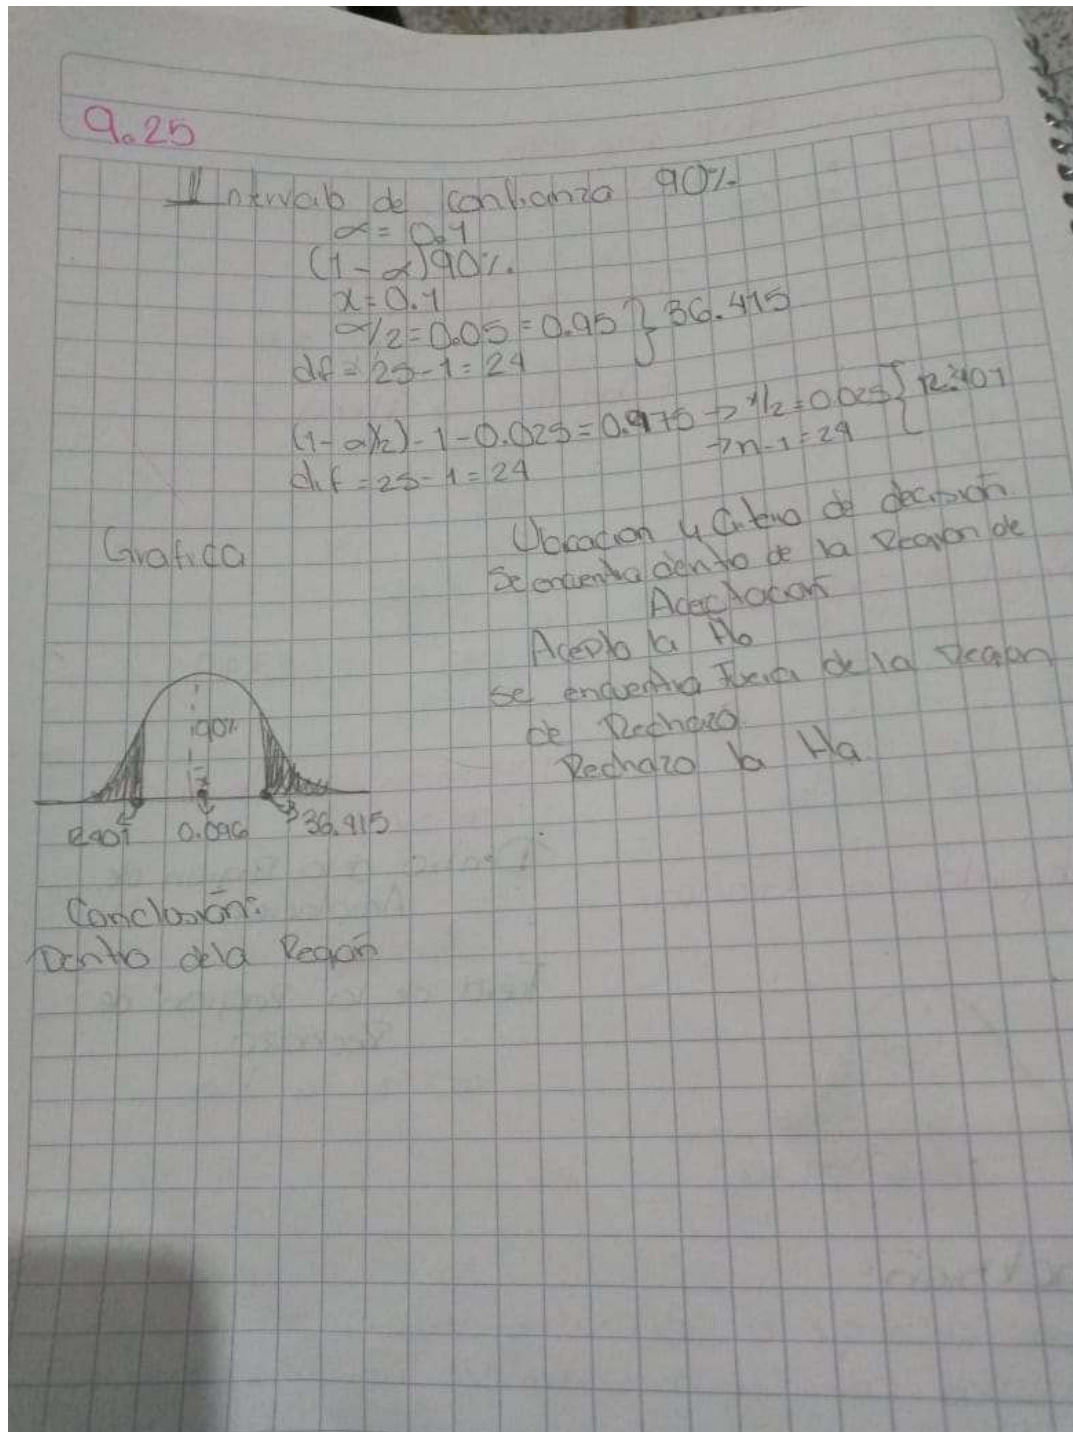 9.25
Intervalo de confianza 90%
α = 0.1
(1 - α) 90%.
x = 0.1
α/2 = 0.05 = 0.95 } 36.415
df = 25 - 1 = 24
(1 - α/2) - 1 - 0.025 = 0.975 → /2 = 0.025 }
d.f = 25 - 1 = 24 → n - 1 = 24
Grafica
Ubicacion y Criterio de decision
Se encuentra dentro de la Region de
Aceptacion
Acepto la Ho
se encuentra Fuera de la region
de Rechazo
Rechazo la Ha.
90%
0.096
36.415
Conclusión:
Dentro dela Región